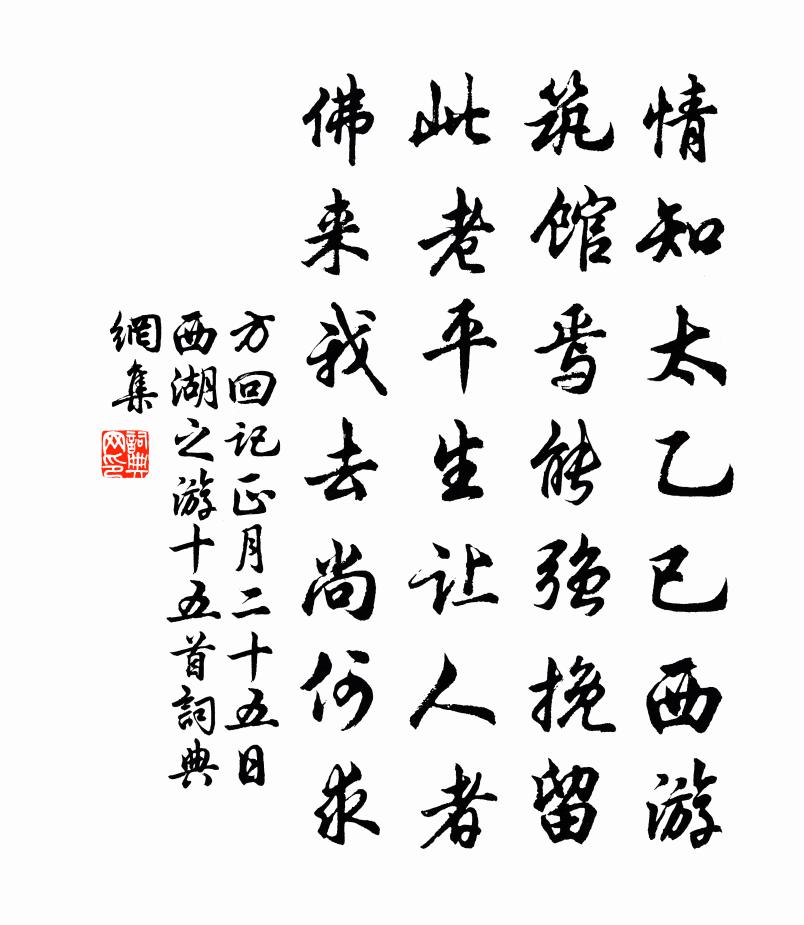 情知太乙已西游
筑馆焉能强挽留
此老平生让人者
佛来我去尚何求
方回记正月二十五日
西湖之游十五首詞典
網集
詞典网印